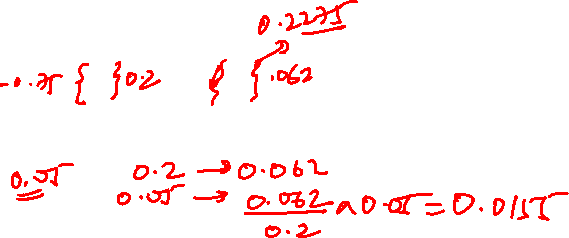 0.2275
0.75 { } 0.2 { } .062
0.05 0.2 → 0.062
0.05 → 0.062/0.2 x 0.05 = 0.0155